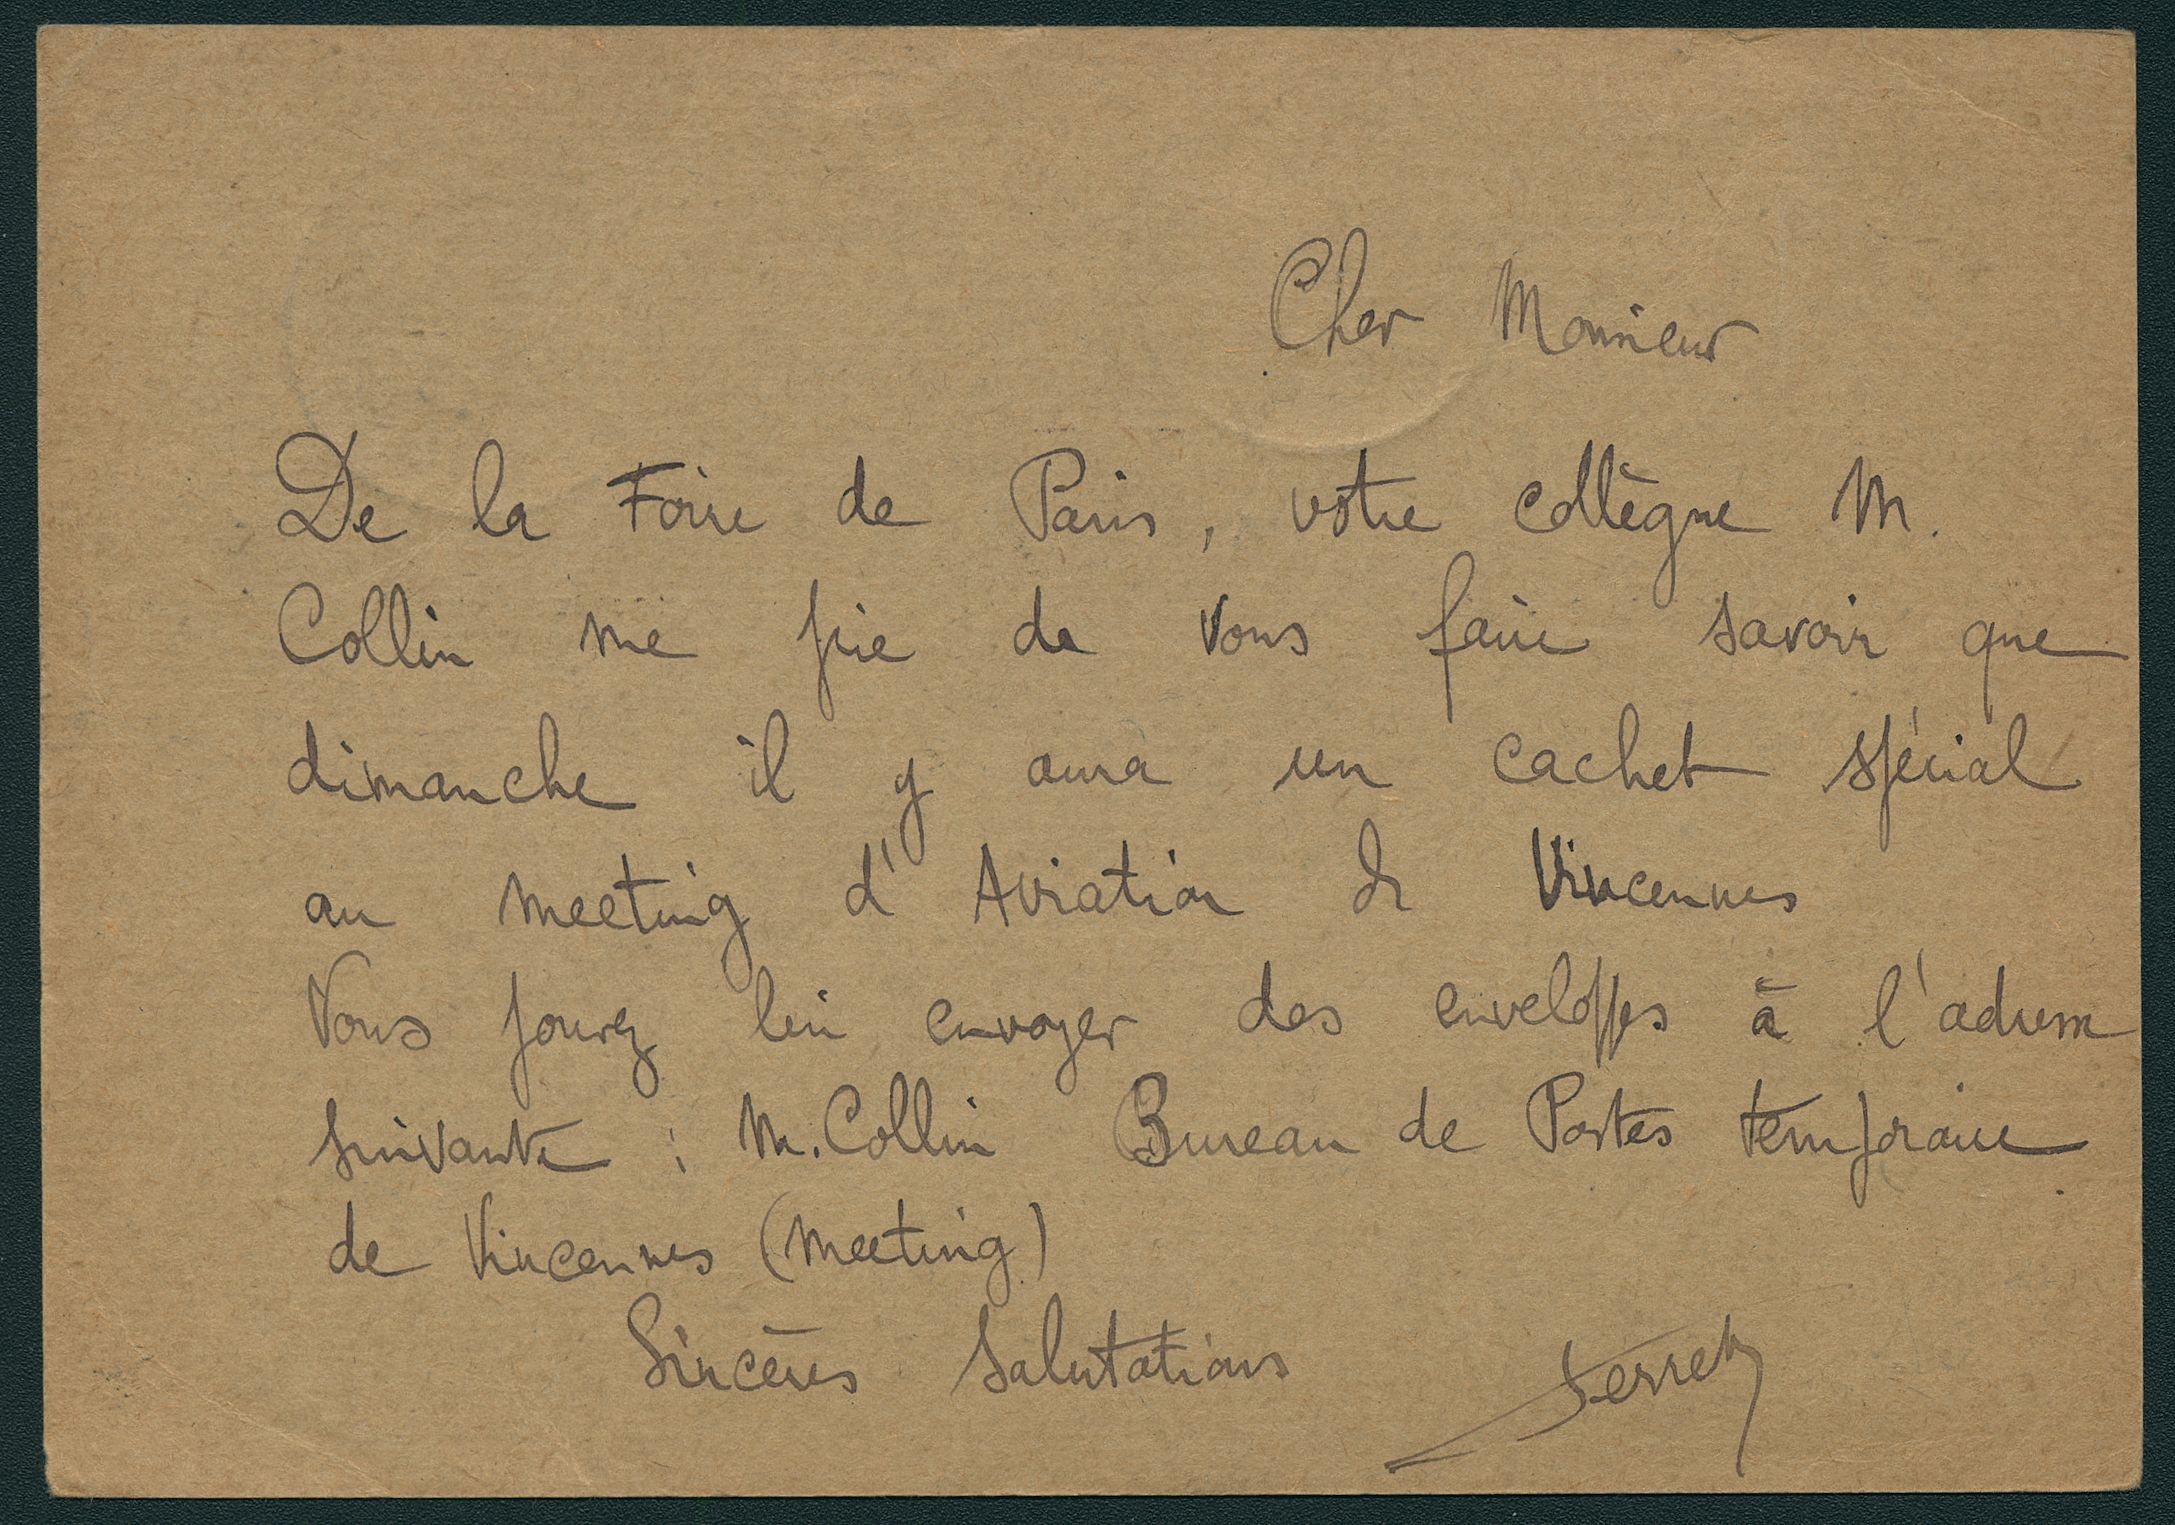 Cher Monsieur
De la Foire de Paris, votre collègue M.
Collin me prie de vous faire savoir que
dimanche il y aura un cachet spécial
au meeting d'Aviation de Vincennes
Vous pouvez lui envoyer des enveloppes à l'adresse
suivante : M. Collin Bureau de Postes temporaire
de Vincennes (meeting)
Sincères Salutations